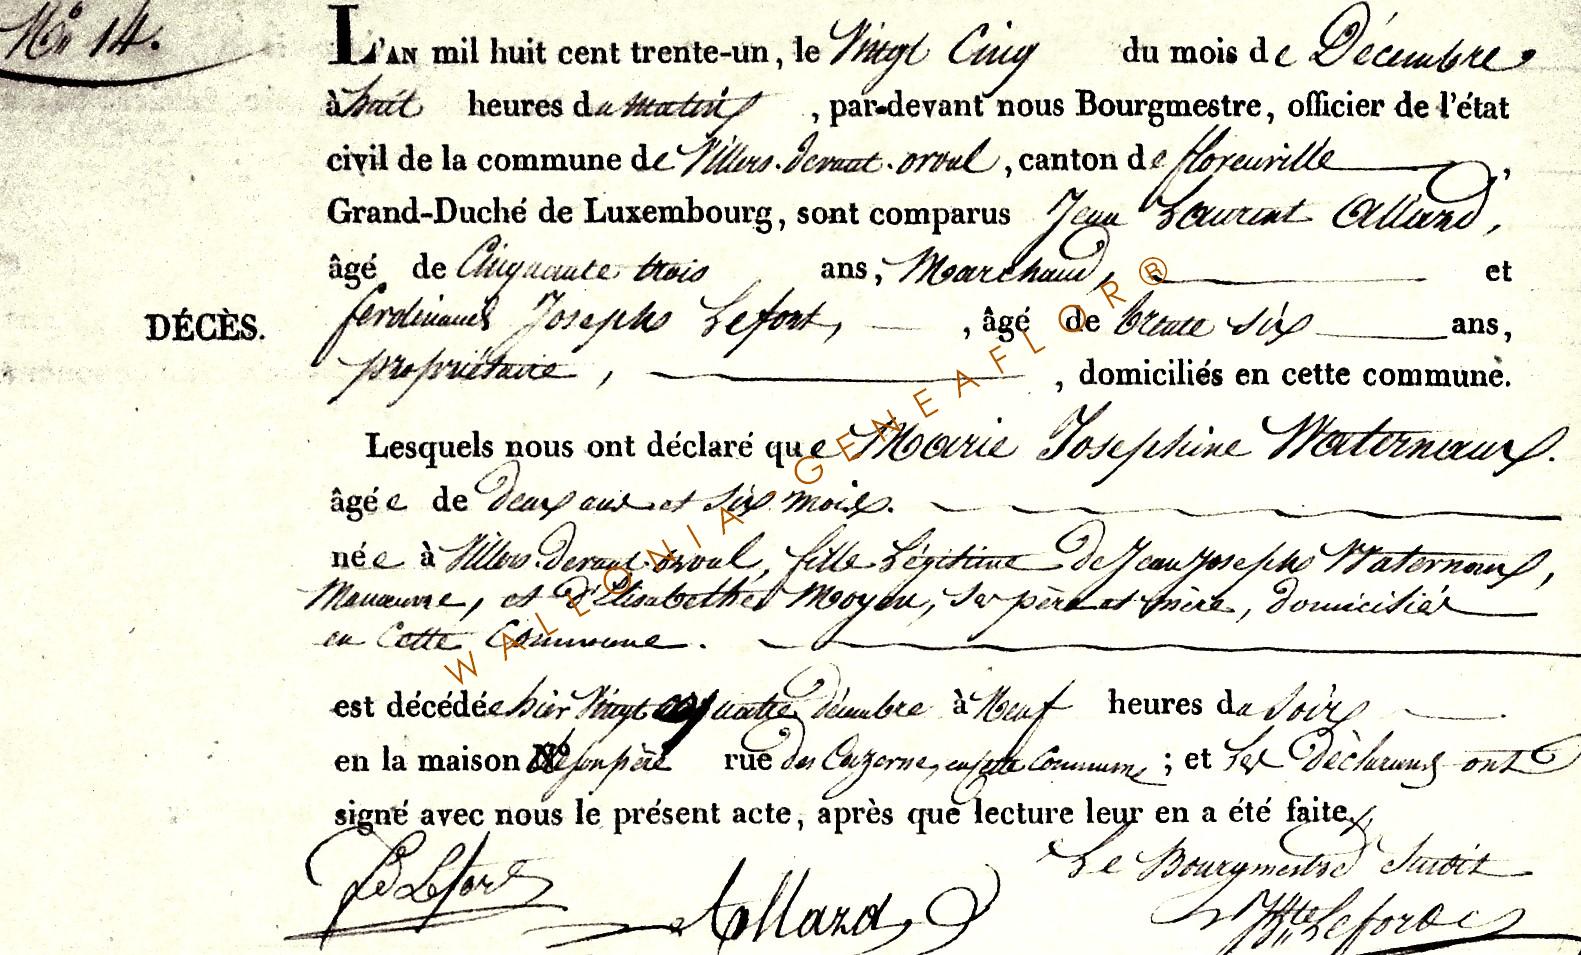 N° 14.
L'AN mil huit cent trente-un, le Vingt Cinq du mois de Décembre,
à huit heures du matin, par-devant nous Bourgmestre, officier de l'état
civil de la commune de Villers-devant-orval, canton de florenville,
Grand-Duché de Luxembourg, sont comparus Jean Laurent Allard,
âgé de Cinquante trois ans, Marchand, et
ferdinand Joseph Lefort, , âgé de trente six ans,
DÉCÈS.
propriétaire, , domiciliés en cette commune.
Lesquels nous ont déclaré que Marie Josephine Waternaux.
âgée de deux ans et six mois.
née à Villers-devant-orval, fille Légitime de Jean Joseph Waternaux,
Manœuvre, et d'Elisabethe Moyen, ses père et mère, domiciliés
en Cette Commune.
est décédée hier Vingt quatre décembre à Neuf heures du soir
en la maison de son père rue des Cazerne, en cette Commune ; et Les Déclarants ont
signé avec nous le présent acte, après que lecture leur en a été faite,
Le Bourgmestre
Fd Lefort Allard Hte Lefort
WALLONIA - GENEAFLOR®